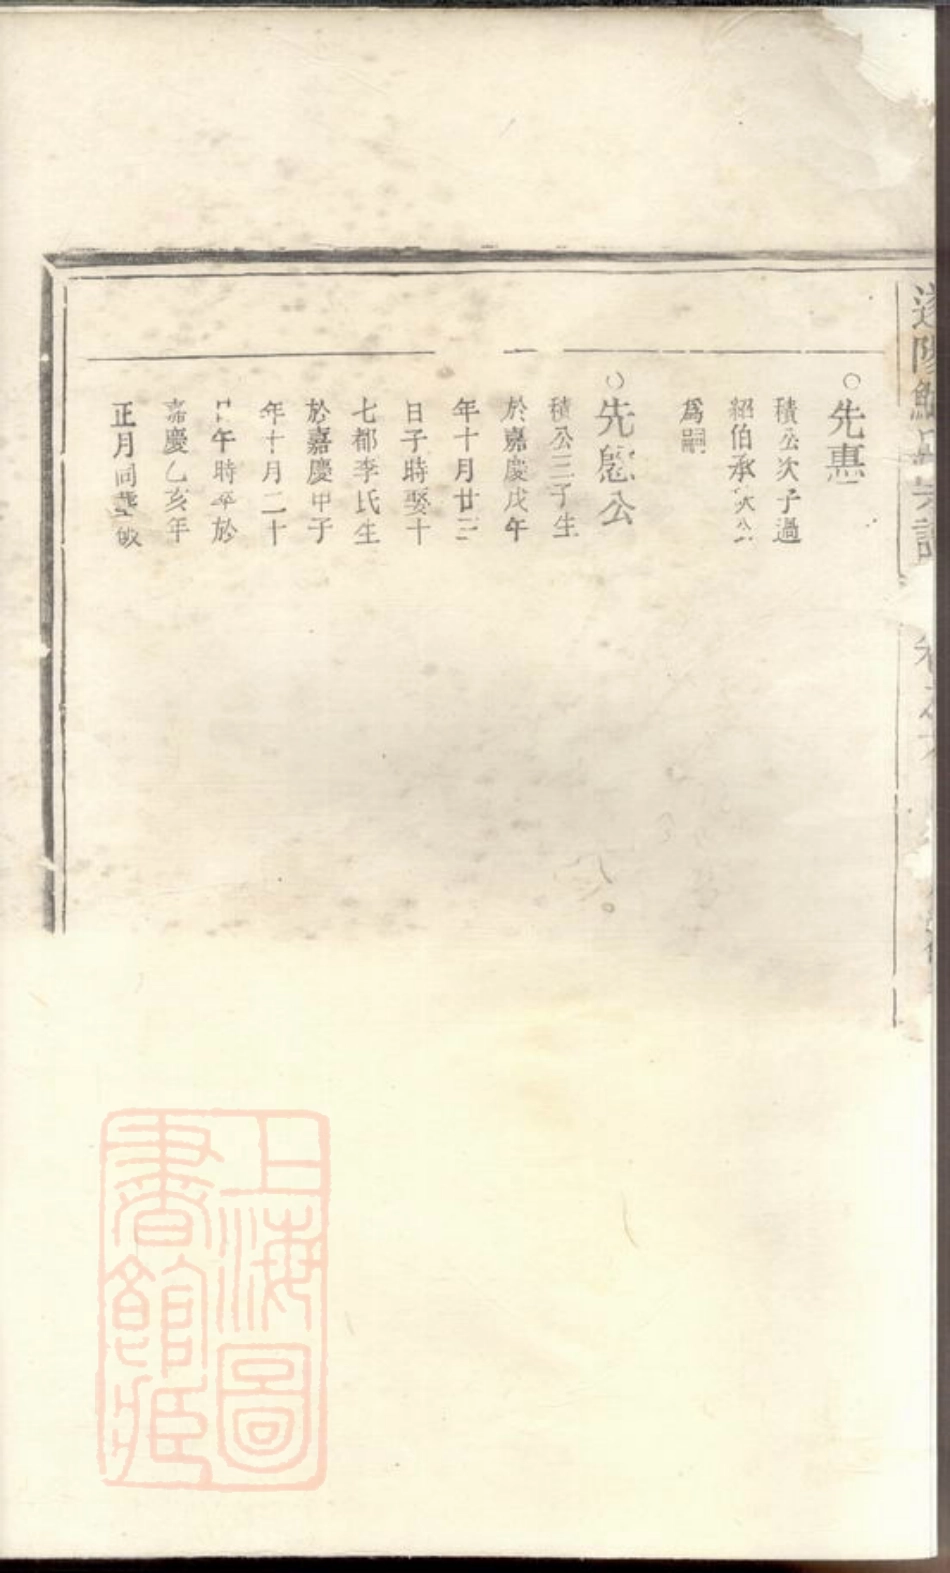 ○先惠
積公次子過
紹伯承次公
爲嗣
○先慇公
積公三子生
於嘉慶戊午
年十月廿三
日子時娶十
七都李氏生
於嘉慶甲子
年十月二十
日午時卒於
嘉慶乙亥年
正月同葬
上海圖
書館藏